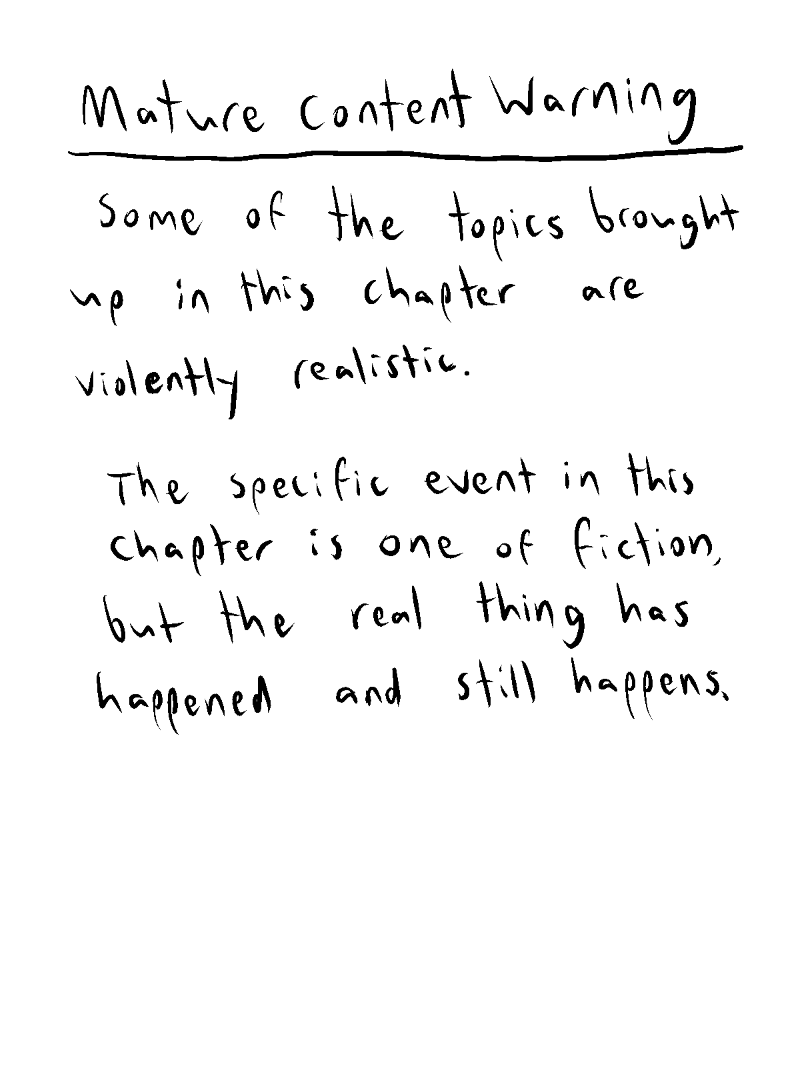 Mature Content Warning
Some of the topics brought
up in this chapter are
violently realistic.
The specific event in this
chapter is one of fiction,
but the real thing has
happened and still happens.